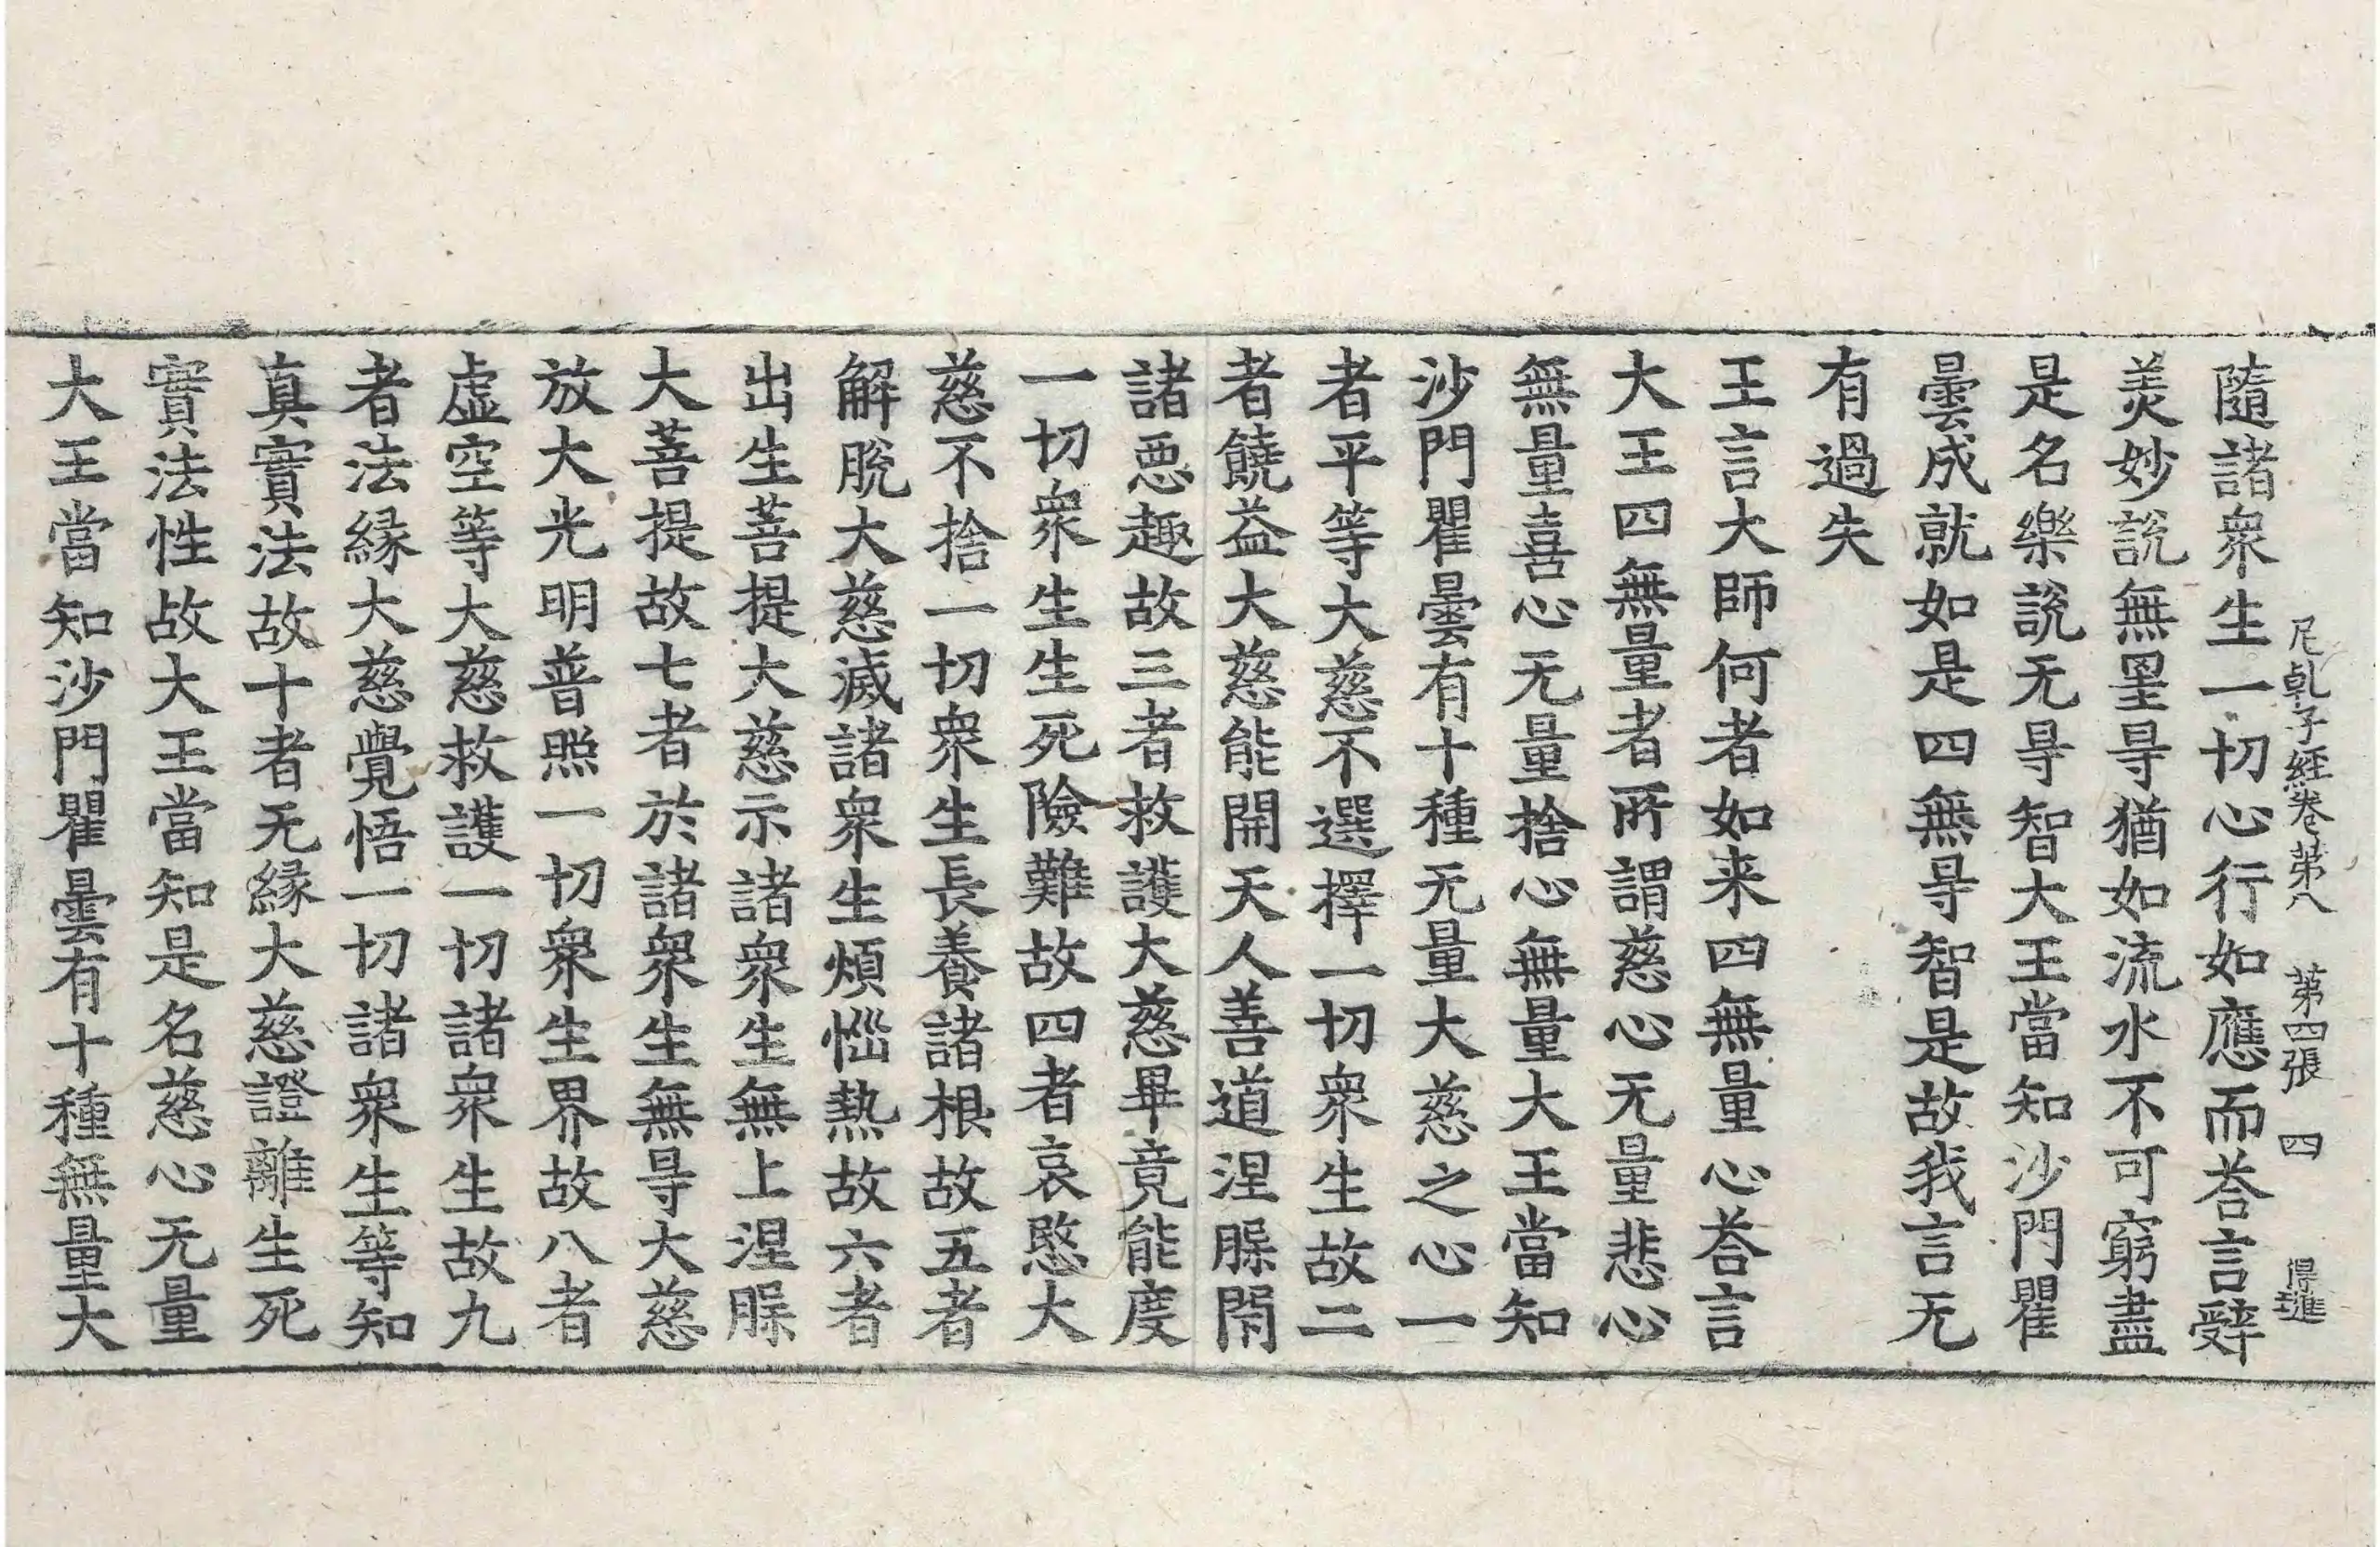 尼乹子經卷第八　第四張　四　得進
隨諸衆生一切心行如應而荅言辤
羙妙説無罣㝵猶如流水不可窮盡
是名樂説无㝵智大王當知沙門瞿
曇成就如是四無㝵智是故我言无
有過失
王言大師何者如来四無量心荅言
大王四無量者所謂慈心无量悲心
無量喜心无量捨心無量大王當知
沙門瞿曇有十種无量大慈之心一
者平等大慈不選擇一切衆生故二
者饒益大慈能開天人善道涅槃閇
諸惡趣故三者救護大慈畢竟能度
一切衆生生死險難故四者哀愍大
慈不捨一切衆生長養諸根故五者
解脫大慈滅諸衆生煩惱熱故六者
出生菩提大慈示諸衆生無上涅槃
大菩提故七者於諸衆生無㝵大慈
放大光明普照一切衆生界故八者
虛空等大慈救護一切諸衆生故九
者法緣大慈覺悟一切諸衆生等知
真實法故十者无緣大慈證離生死
實法性故大王當知是名慈心无量
大王當知沙門瞿曇有十種無量大